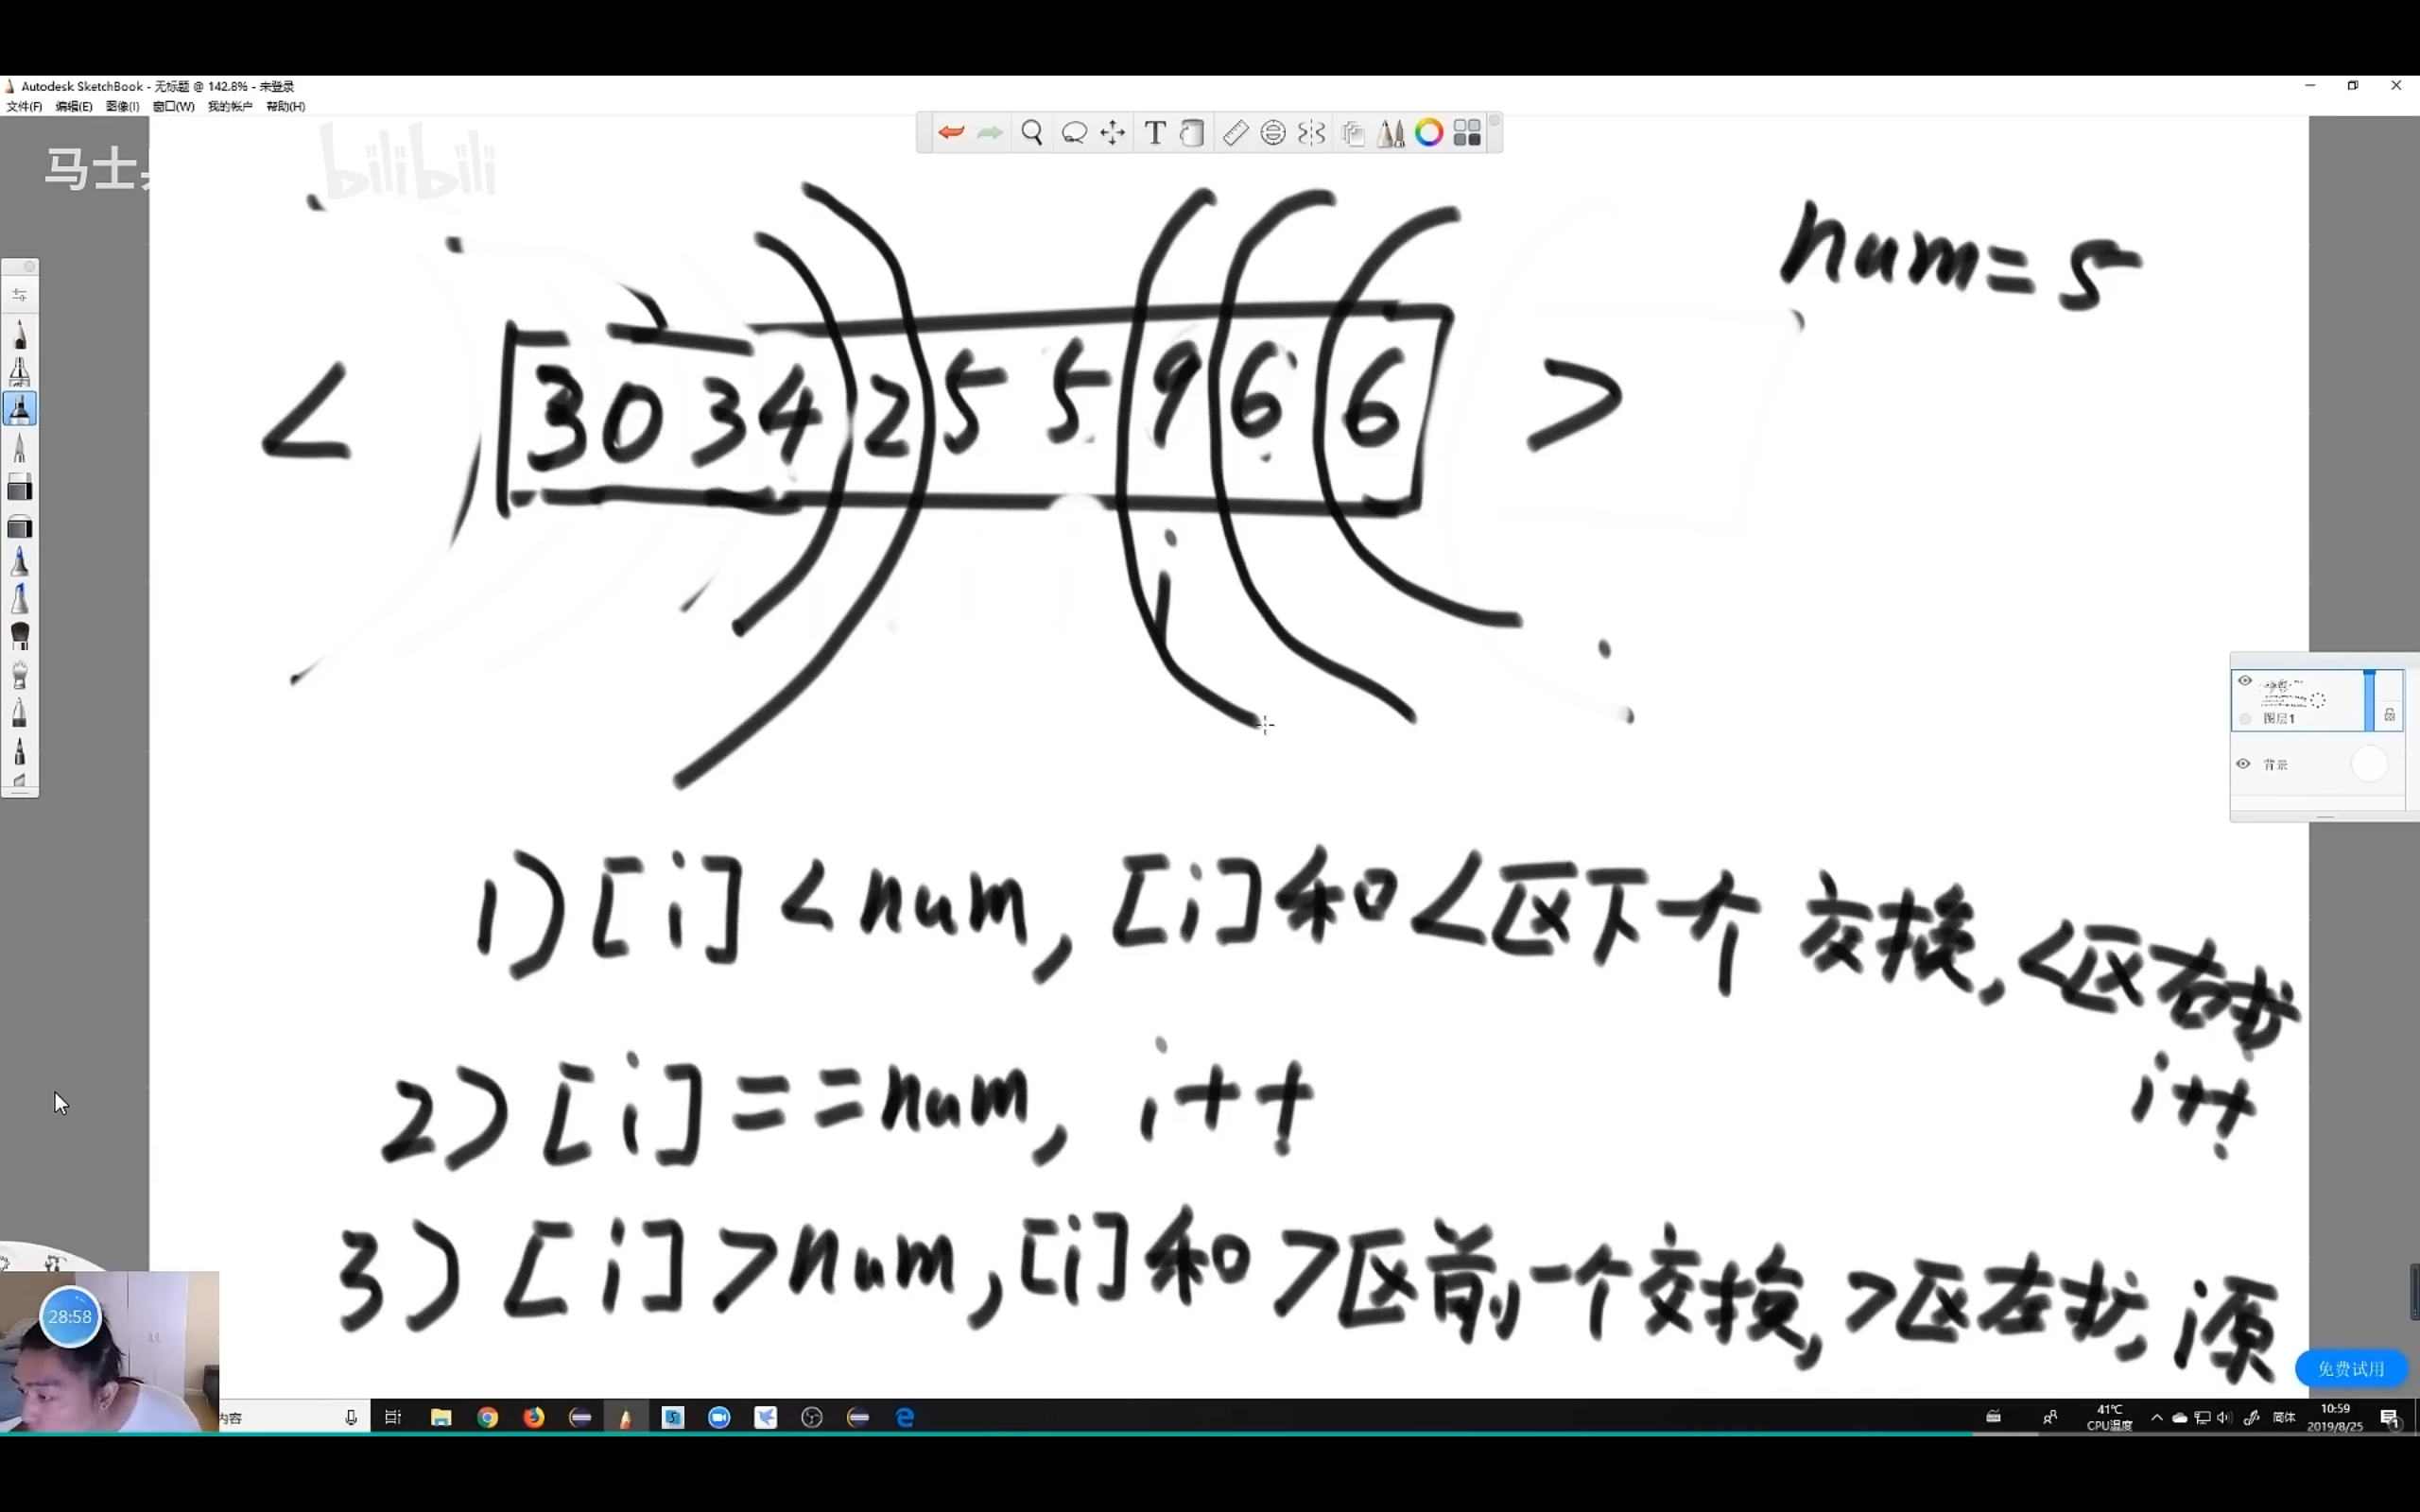 Autodesk SketchBook - 无标题 @ 142.8% - 未登录
文件(F) 编辑(E) 图像(I) 窗口(W) 我的帐户 帮助(H)
马士
bilibili
num=5
< 3 0 3 4 2 5 5 9 6 6 >
i
图层1
背景
1) [i] < num, [i]和<区下一个 交换, <区右扩
i++
2) [i] == num, i++
3) [i] > num, [i]和 >区前一个交换, >区左扩, i原
28:58
免费试用
内容
41℃
CPU温度
简体
10:59
2019/8/25
1